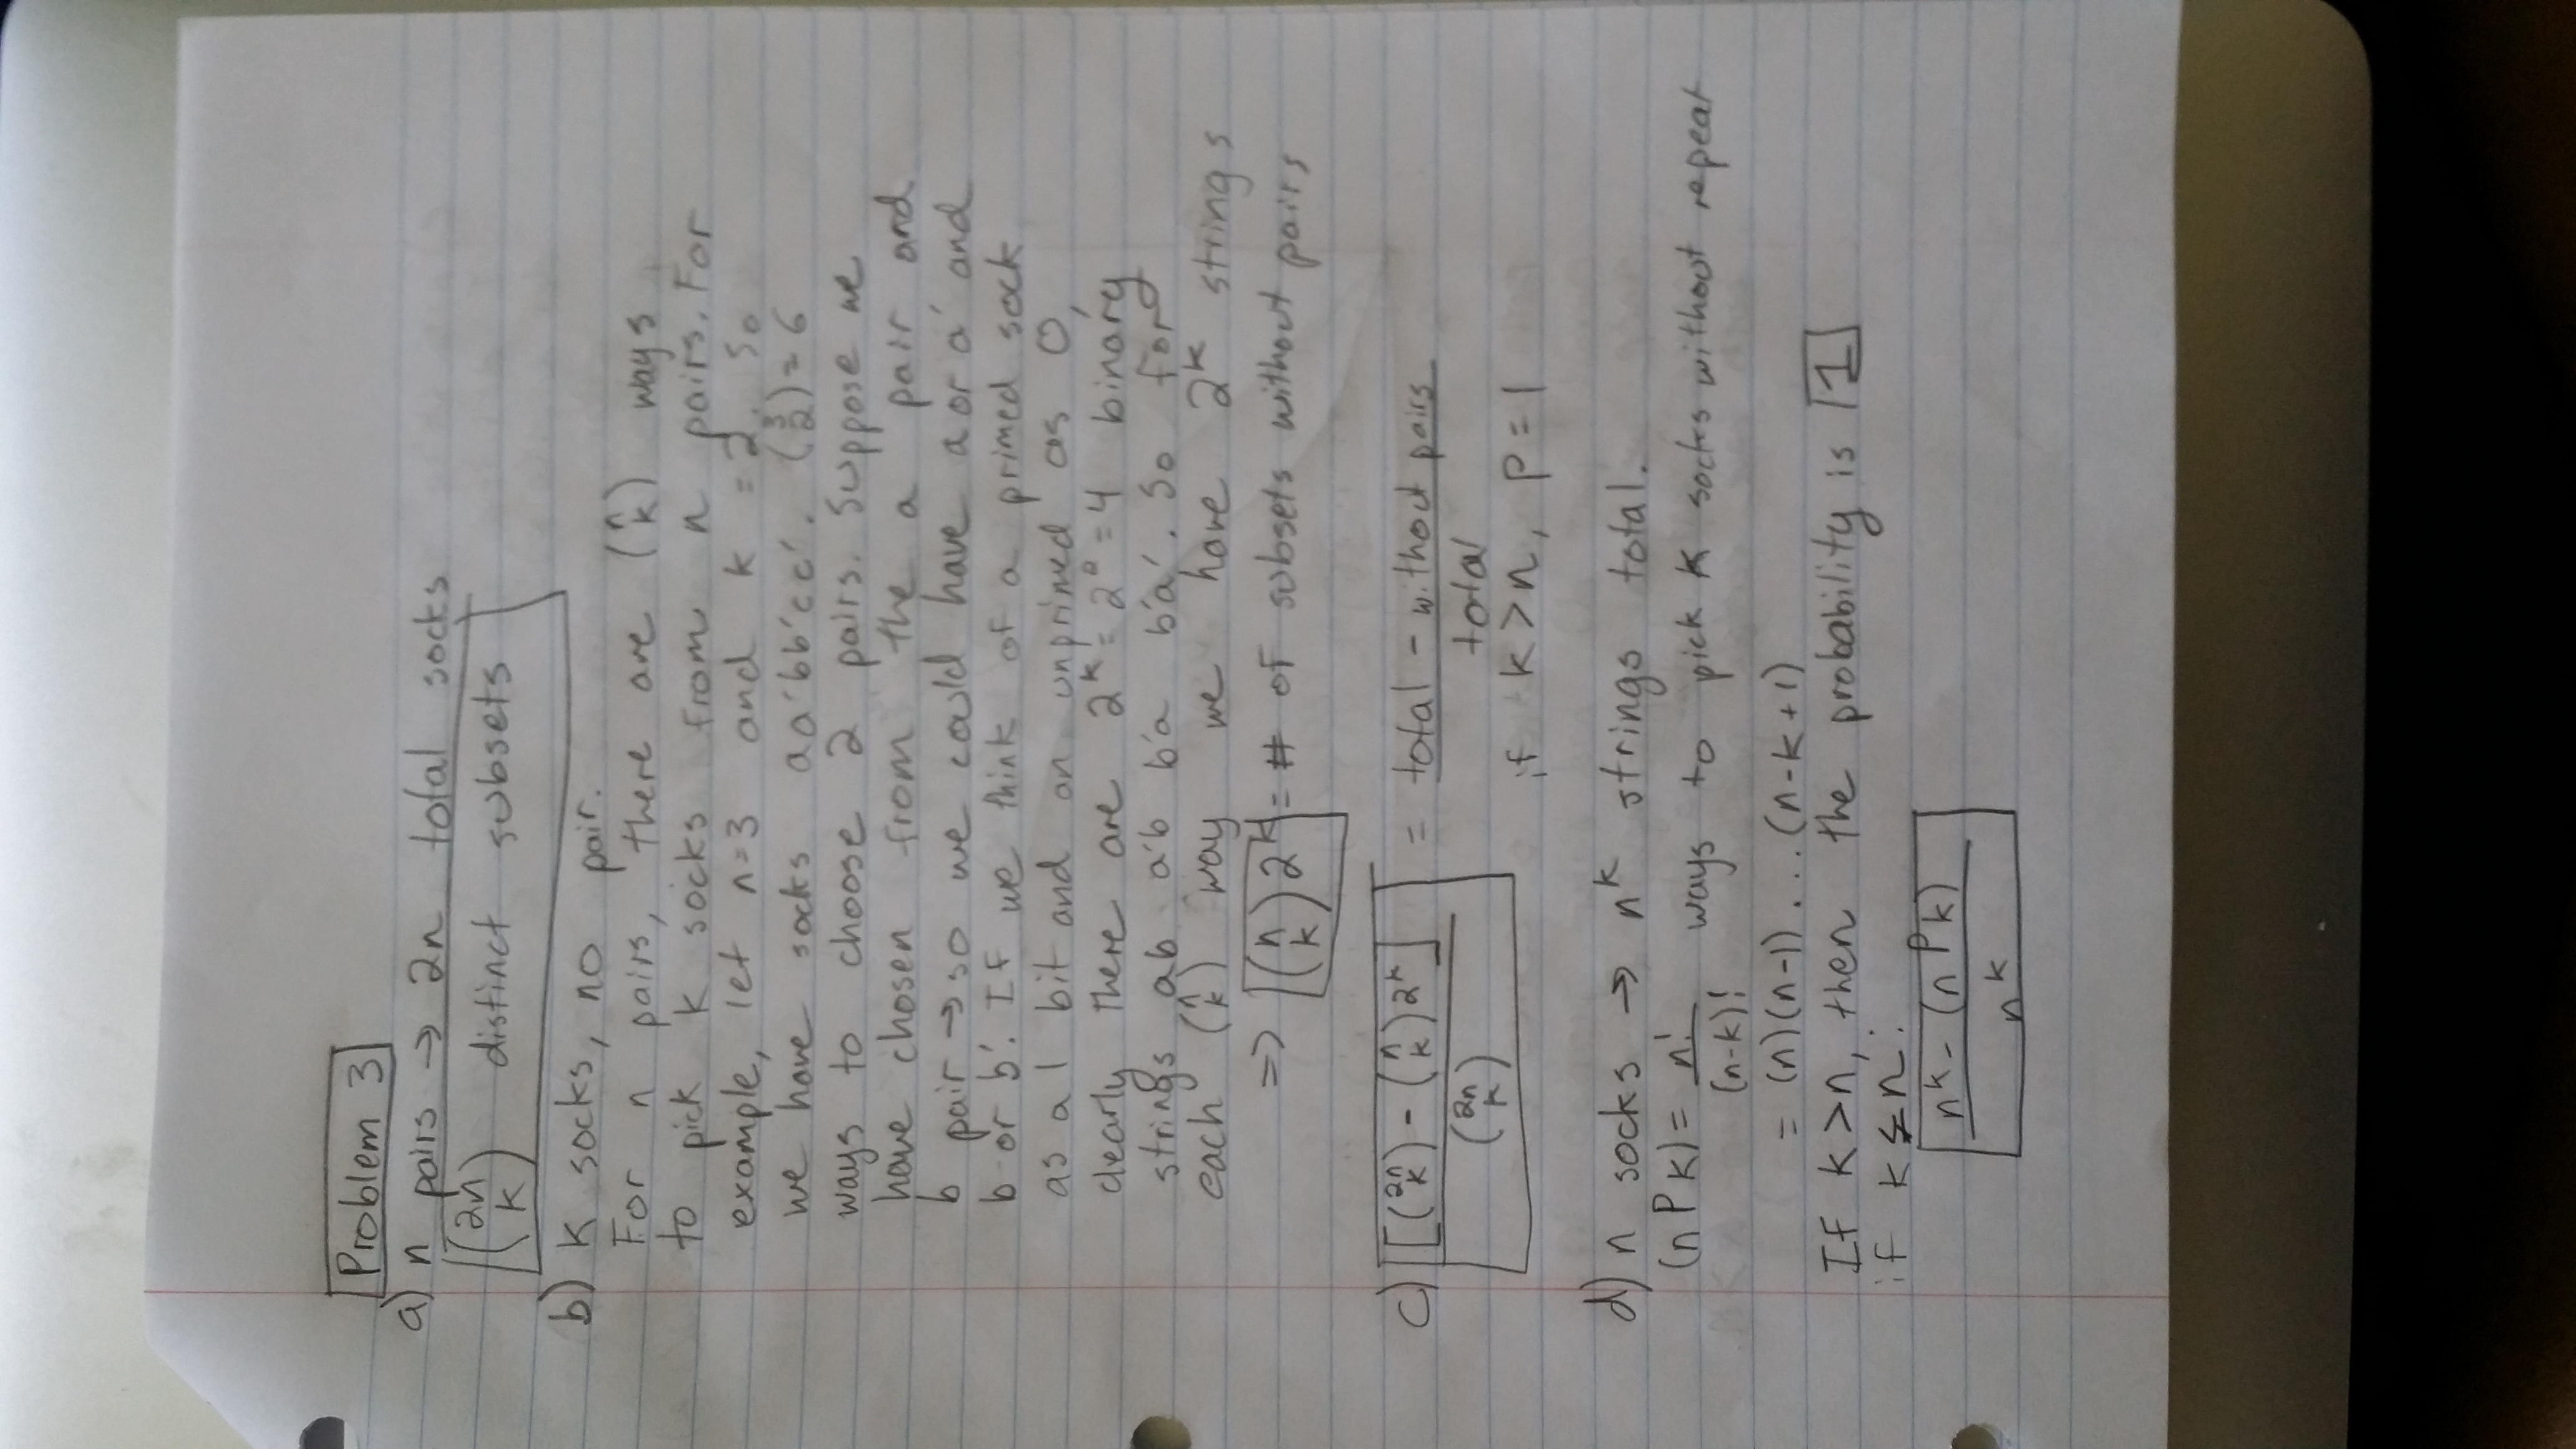 Problem 3
a) n pairs → 2n total socks
(2n k) distinct subsets
b) k socks, no pair.
For n pairs, there are (n k) ways
to pick k socks from n pairs. For
example, let n=3 and k =2. So
we have socks aa'bb'cc'. (3 2)=6
ways to choose 2 pairs. Suppose we
have chosen from the a pair and
b pair → so we could have a or a' and
b or b'. If we think of a primed sock
as a 1 bit and an unprimed as 0,
clearly there are 2^k = 2^2 = 4 binary
strings ab a'b b'a b'a'. So for
each (n k) way we have 2^k strings
=> (n k) 2^k = # of subsets without pairs
c) [(2n k) - (n k) 2^k] / (2n k) = total - without pairs / total
if k>n, p=1
d) n socks → n^k strings total.
(n P k) = n! / (n-k)! ways to pick k socks without repeat
= (n)(n-1)...(n-k+1)
If k>n, then the probability is 1
if k≤n:
n^k - (n P k) / n^k